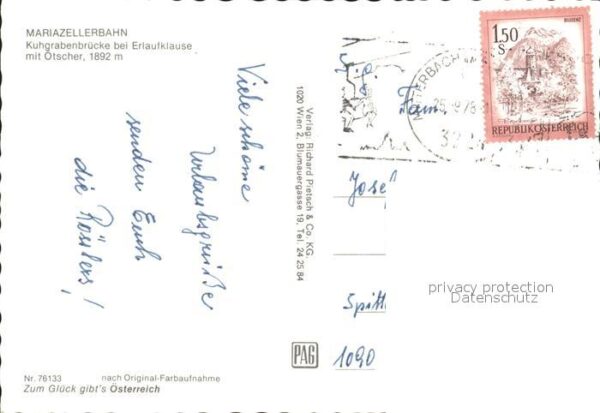 MARIAZELLERBAHN
Kuhgrabenbrücke bei Erlaufklause
mit Ötscher, 1892 m
Viele schöne
Urlaubsgrüße
senden Euch
die
Verlag: Richard Pietsch & Co. KG.
1020 Wien 2, Blumauergasse 19, Tel. 24 25 84
PAG
Nr. 76133 nach Original-Farbaufnahme
Zum Glück gibt's Österreich
1.50
S
BLUDENZ
REPUBLIK ÖSTERREICH
Fam.
Jose
Spitt
1090
privacy protection
Datenschutz